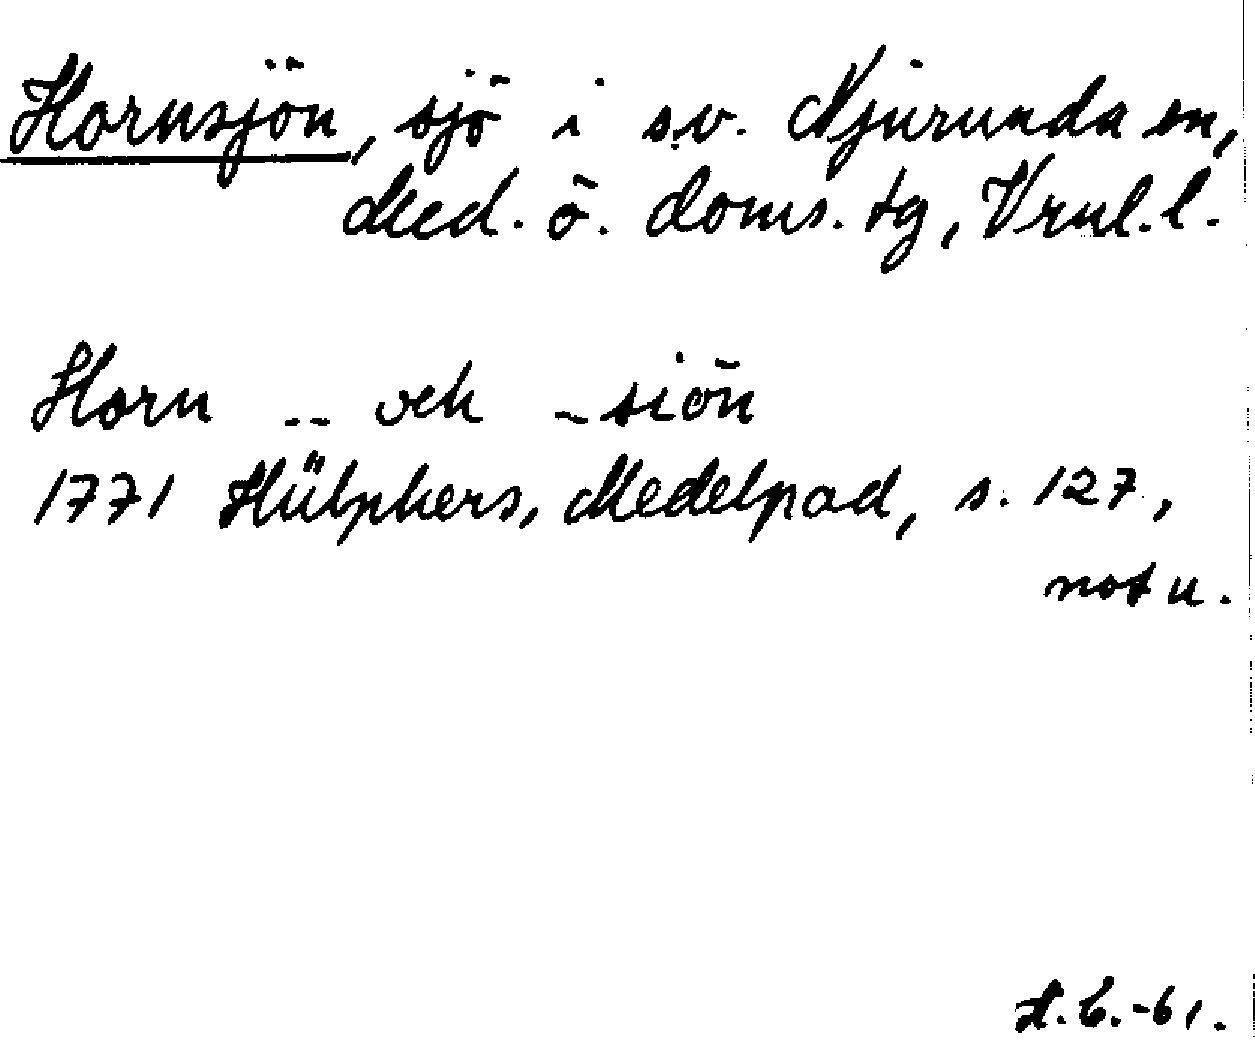 Hornsjön, sjö i s.v. Njurunda sn,
Med. ö. doms. tg, Vrnl. l.
Horn -- och -siön
1771 Hülphers, Medelpad, s. 127,
not u.
H.C.-61.